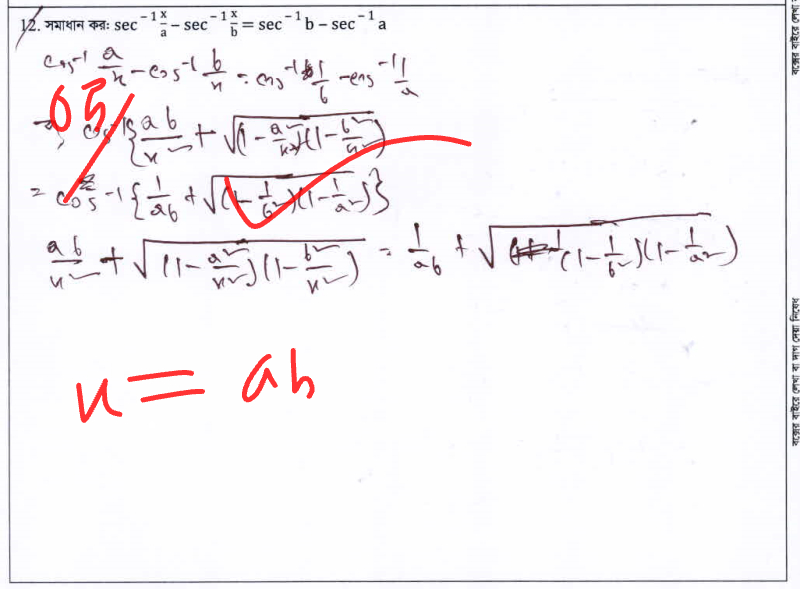 12. সমাধান করঃ sec⁻¹ x/a − sec⁻¹ x/b = sec⁻¹ b − sec⁻¹ a
cos⁻¹ a/x − cos⁻¹ b/x = cos⁻¹ 1/b − cos⁻¹ 1/a
05
⇒ cos⁻¹{ab/x² + √(1 − a²/x²)(1 − b²/x²)}
= cos⁻¹{1/ab + √(1 − 1/b²)(1 − 1/a²)}
ab/x² + √(1 − a²/x²)(1 − b²/x²) = 1/ab + √(1 − 1/b²)(1 − 1/a²)
x = ab
বক্সের বাইরে লেখা
বক্সের বাইরে লেখা বা দাগ দেয়া নিষেধ